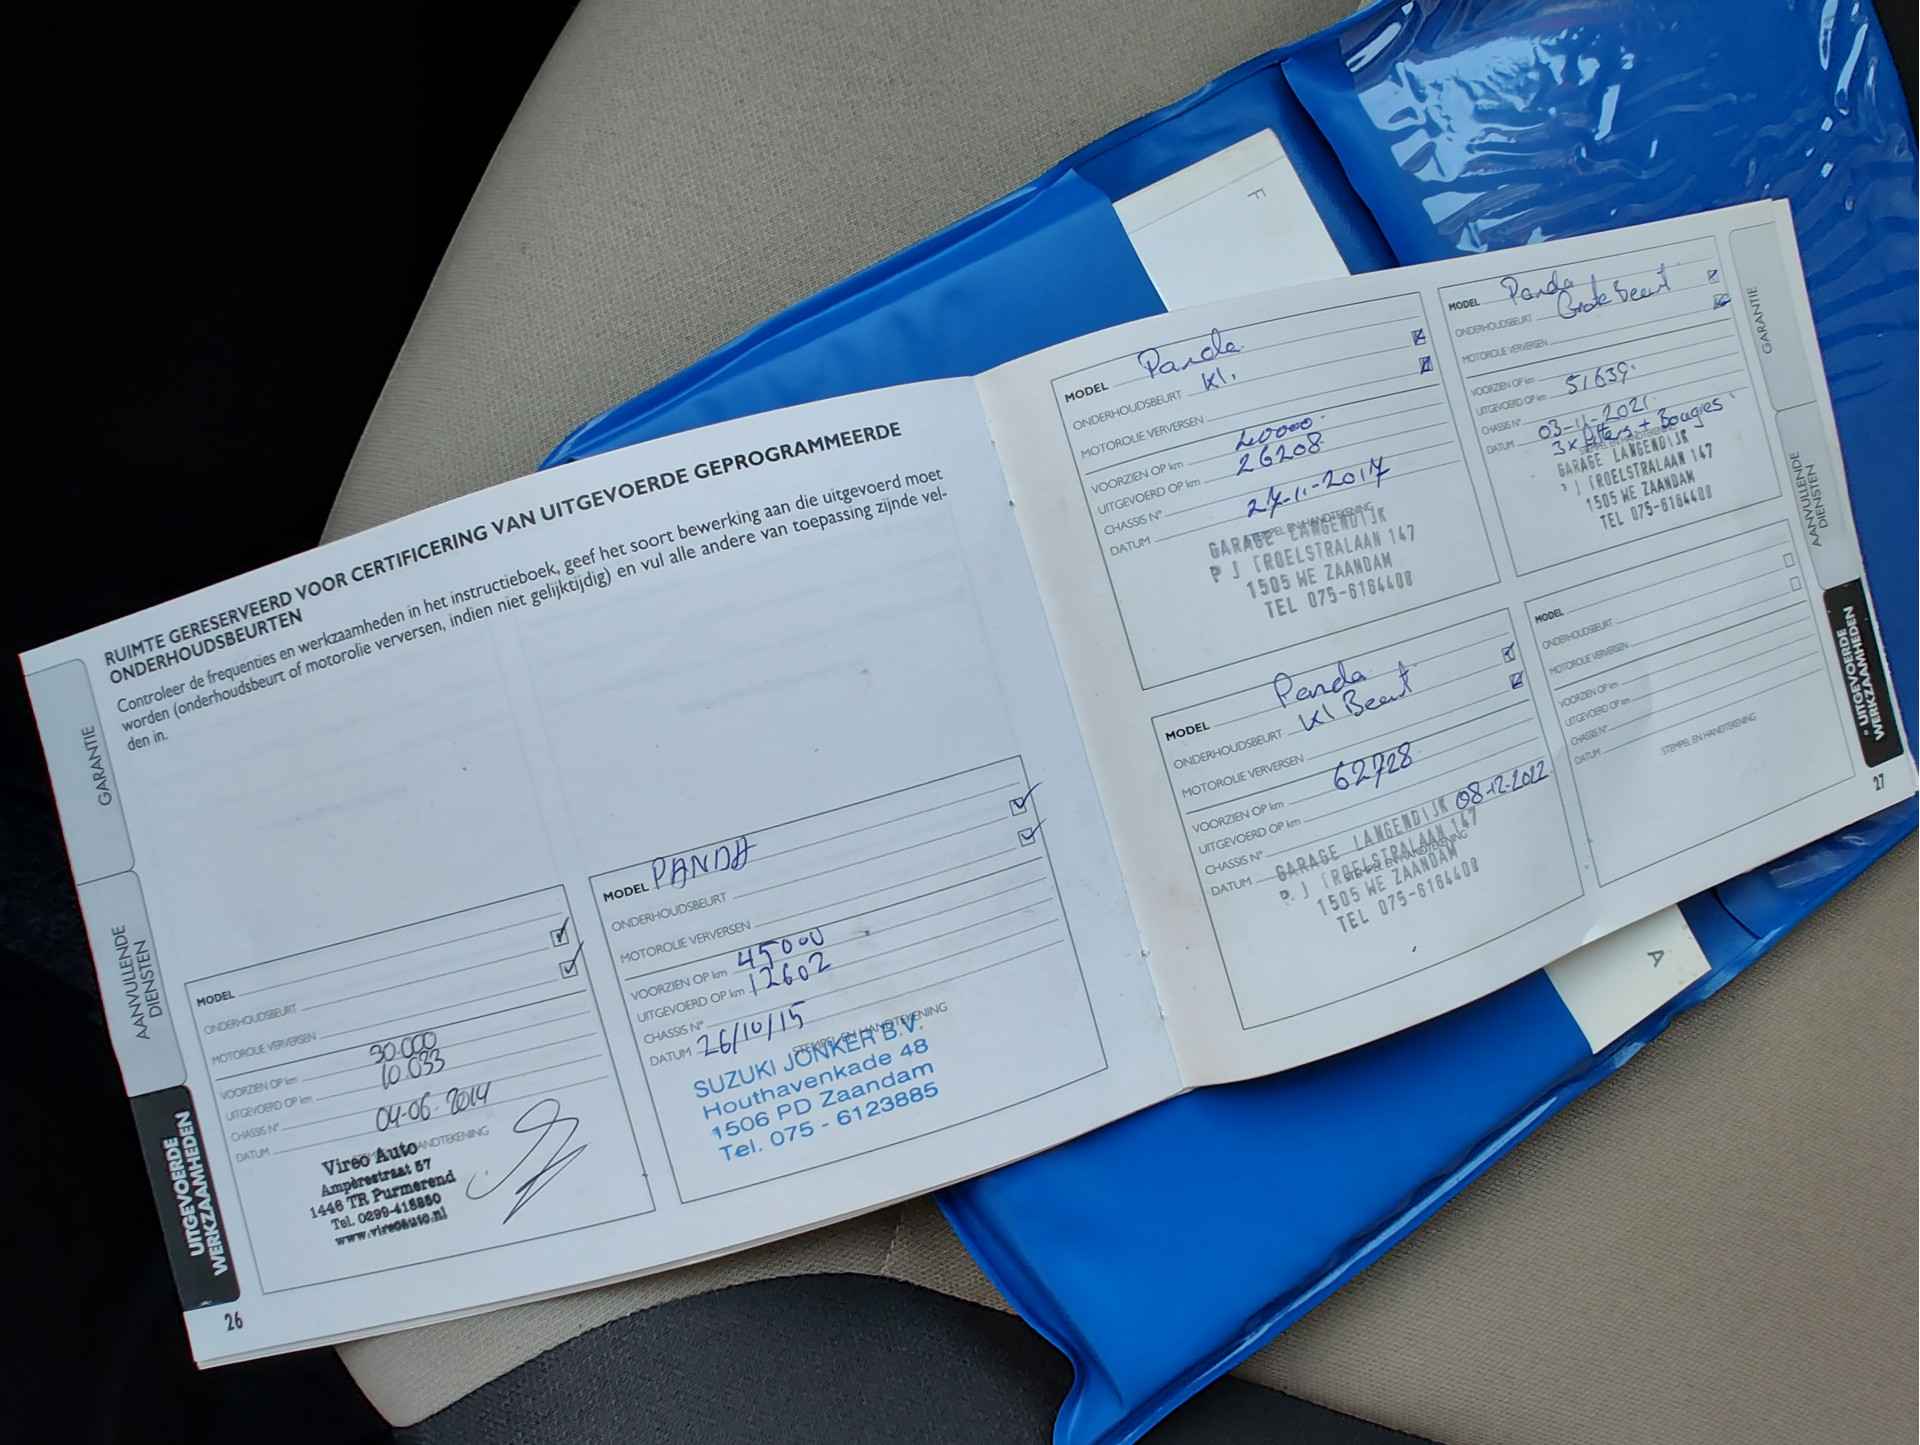 RUIMTE GERESERVEERD VOOR CERTIFICERING VAN UITGEVOERDE GEPROGRAMMEERDE
ONDERHOUDSBEURTEN
Controleer de frequenties en werkzaamheden in het instructieboek, geef het soort bewerking aan die uitgevoerd moet
worden (onderhoudsbeurt of motorolie verversen, indien niet gelijktijdig) en vul alle andere van toepassing zijnde vel-
den in.
GARANTIE
AANVULLENDE
DIENSTEN
UITGEVOERDE
WERKZAAMHEDEN
MODEL
ONDERHOUDSBEURT
MOTOROLIE VERVERSEN
VOORZIEN OP km 30.000
UITGEVOERD OP km 10.033
CHASSIS N°
DATUM 04-06-2014
STEMPEL EN HANDTEKENING
Vireo Auto
Ampèrestraat 57
1446 TR Purmerend
Tel. 0299-415850
www.vireoauto.nl
26
MODEL PANDA
ONDERHOUDSBEURT
MOTOROLIE VERVERSEN
VOORZIEN OP km 45000
UITGEVOERD OP km 12602
CHASSIS N°
DATUM 26/10/15
STEMPEL EN HANDTEKENING
SUZUKI JONKER B.V.
Houthavenkade 48
1506 PD Zaandam
Tel. 075 - 6123885
MODEL Panda
ONDERHOUDSBEURT Kl.
MOTOROLIE VERVERSEN
VOORZIEN OP km 20000
UITGEVOERD OP km 26208
CHASSIS N°
DATUM 27-11-2017
STEMPEL EN HANDTEKENING
GARAGE LANGENDIJK
P J TROELSTRALAAN 147
1505 WE ZAANDAM
TEL 075-6164408
MODEL Panda
ONDERHOUDSBEURT Kl Beurt
MOTOROLIE VERVERSEN
VOORZIEN OP km 62728
UITGEVOERD OP km
CHASSIS N° 08-12-2022
DATUM
STEMPEL EN HANDTEKENING
GARAGE LANGENDIJK
P. J TROELSTRALAAN 147
1505 WE ZAANDAM
TEL 075-6164408
MODEL Panda
ONDERHOUDSBEURT Grote Beurt
MOTOROLIE VERVERSEN
VOORZIEN OP km
UITGEVOERD OP km 51639
CHASSIS N°
DATUM 03-11-2021
3x filters + Bougies
STEMPEL EN HANDTEKENING
GARAGE LANGENDIJK
P J TROELSTRALAAN 147
1505 WE ZAANDAM
TEL 075-6164408
MODEL
ONDERHOUDSBEURT
MOTOROLIE VERVERSEN
VOORZIEN OP km
UITGEVOERD OP km
CHASSIS N°
DATUM
STEMPEL EN HANDTEKENING
GARANTIE
AANVULLENDE
DIENSTEN
UITGEVOERDE
WERKZAAMHEDEN
27
F
A